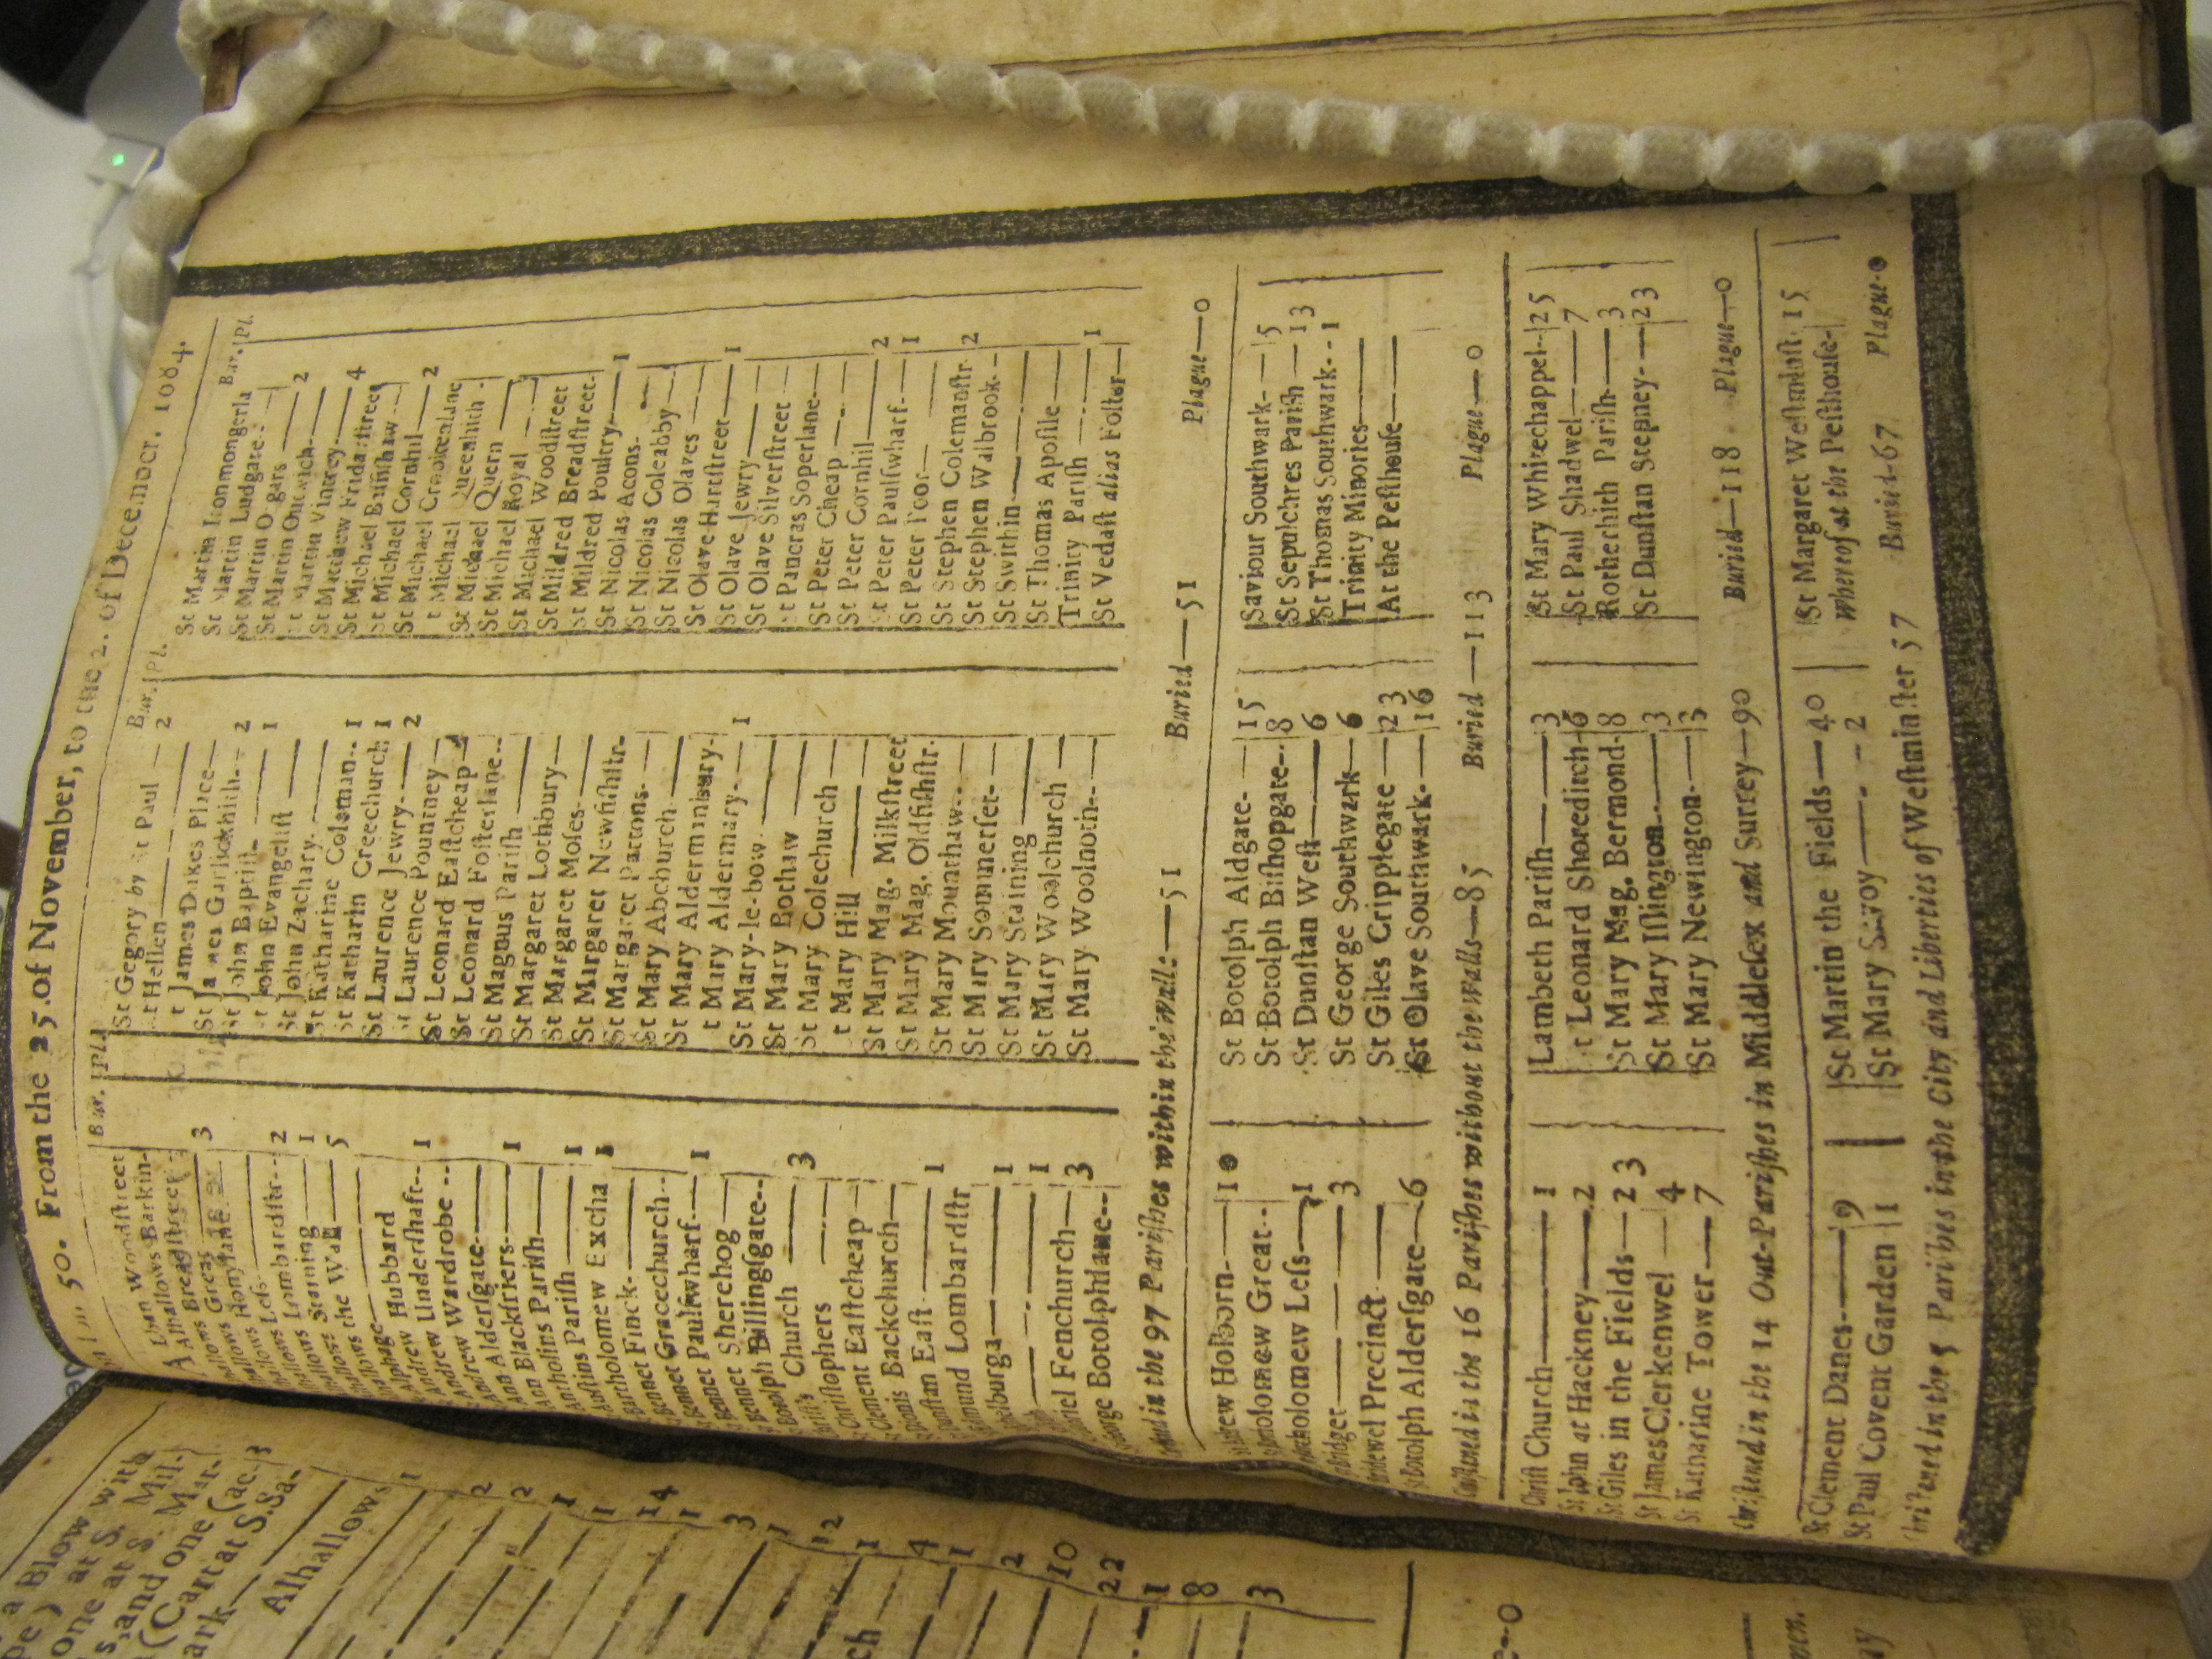 50. From the 25. of November, to the 2. of December. 1684.
Bur. Pl.
Woodstreet
Alhallows Barkin-
Alhallows Breadstreet
hallows Great 3
hallows Honylane
hallows Less
hallows Lombardstr-- 2
hallows Staining 1
hallows the Wall 5
Alphage
Andrew Hubbard
Andrew Undershaft-- 1
Andrew Wardrobe --
Ann Aldersgate
Ann Blackfriers 1
Antholins Parish
Austins Parish 1
Bartholomew Excha 1
Bennet Finck-
Bennet Gracechurch--
Bennet Paulswharf-- 1
Bennet Sherehog
Botolph Billingsgate--
Church 3
Christophers
Clement Eastcheap
Dionis Backchurch
Dunstan East 1
Edmund Lombardstr
elburga 1
1
riel Fenchurch 3
George Botolphlane--
Bur. Pl.
St Gregory by St Paul -- 2
St Hellen
St James Dukes Place
St James Garlickhith-- 2
St John Baptist- 1
St John Evangelist
St John Zachary
St Katharine Coleman-- 1
St Katharin Creechurch 1
St Laurence Jewry 2
St Laurence Pountney
St Leonard Eastcheap
St Leonard Fosterlane--
St Magnus Parish
St Margaret Lothbury
St Margaret Moses
St Margaret Newfishstr-
St Margaret Pattons
St Mary Abchurch
St Mary Aldermanbury-
St Mary Aldermary-- 1
St Mary-le-bow
St Mary Bothaw
St Mary Colechurch
St Mary Hill
St Mary Mag. Milkstreet
St Mary Mag. Oldfishstr.
St Mary Mounthaw--
St Mary Sommerset-
St Mary Staining
St Mary Woolchurch
St Mary Woolnoth--
Bur. Pl.
St Martin Ironmongerla
St Martin Ludgate-- 2
St Martin Orgars
St Martin Outwich-
St Martin Vintrey- 4
St Matthew Fridaistreet
St Michael Bassishaw
St Michael Cornhil 2
St Michael Crookedlane
St Michael Queenhith
St Michael Quern
St Michael Royal
St Michael Woodstreet
St Mildred Breadstreet-
St Mildred Poultry 1
St Nicolas Acons-
St Nicolas Coleabby
St Nicolas Olaves
St Olave Hartstreet 1
St Olave Jewry
St Olave Silverstreet
St Pancras Soperlane
St Peter Cheap
St Peter Cornhil 2
St Peter Paulswharf-- 1
St Peter Poor
St Stephen Colemanstr 2
St Stephen Walbrook-
St Swithin
St Thomas Apostle
Trinity Parish 1
St Vedast alias Foster
in the 97 Parishes within the walls--51 Buried--51 Plague--0
Andrew Holborn--10
Bartholomew Great--
Bartholomew Less--1
Bridget 3
Bridewel Precinct
St Botolph Aldersgate--6
St Botolph Aldgate--15
St Botolph Bishopgate--8
St Dunstan West--6
St George Southwark--6
St Giles Cripplegate--23
St Olave Southwark--16
Saviour Southwark--5
St Sepulchres Parish--13
St Thomas Southwark--1
Trinity Minories
At the Pesthouse
Christned in the 16 Parishes without the Walls--85 Buried--113 Plague--0
Christ Church 1
St John at Hackney 2
St Giles in the Fields--23
St James Clerkenwel 4
St Katharine Tower 7
Lambeth Parish 3
St Leonard Shoreditch-6
St Mary Mag. Bermond-8
St Mary Islington 3
St Mary Newington 3
St Mary Whitechappel-25
St Paul Shadwel 7
Rotherhith Parish 3
St Dunstan Stepney--23
Christned in the 14 Out-Parishes in Middlesex and Surrey--90 Buried--118 Plague--0
St Clement Danes 9
St Paul Covent Garden 1
St Martin the Fields 40
St Mary Savoy 2
St Margaret Westminst. 15
whereof at the Pesthouse-
Christned in the 5 Parishes in the City and Liberties of Westminster 57 Buried-67 Plague-0
a Blow with
one at S. Mil-
s, and one (ac-
(Cart at S. Sa-
ark
Alhallows
1
2
2
1
1
14
1
3
1
12
1
4
1
2
10
22
1
8
3